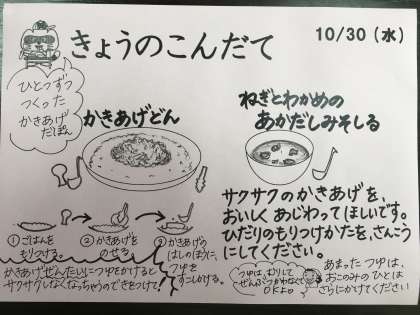 きょうのこんだて
10/30（水）
ひとつずつ
つくった
かきあげ
だぽん
かきあげどん
ねぎとわかめの
あかだしみそしる
サクサクのかきあげを、
おいしくあじわってほしいです。
ひだりのもりつけかたを、さんこう
にしてください。
①ごはんを
もりつける。
②かきあげを
のせる。
③かきあげの
はしのほうに、
つゆを
すこしかける。
かきあげぜんたいにつゆをかけると
サクサクしなくなっちゃうのできをつけて!
つゆは、むりして
ぜんぶつかわなくて
OKだよ
あまったつゆは、
おこのみのひとは
さらにかけてください